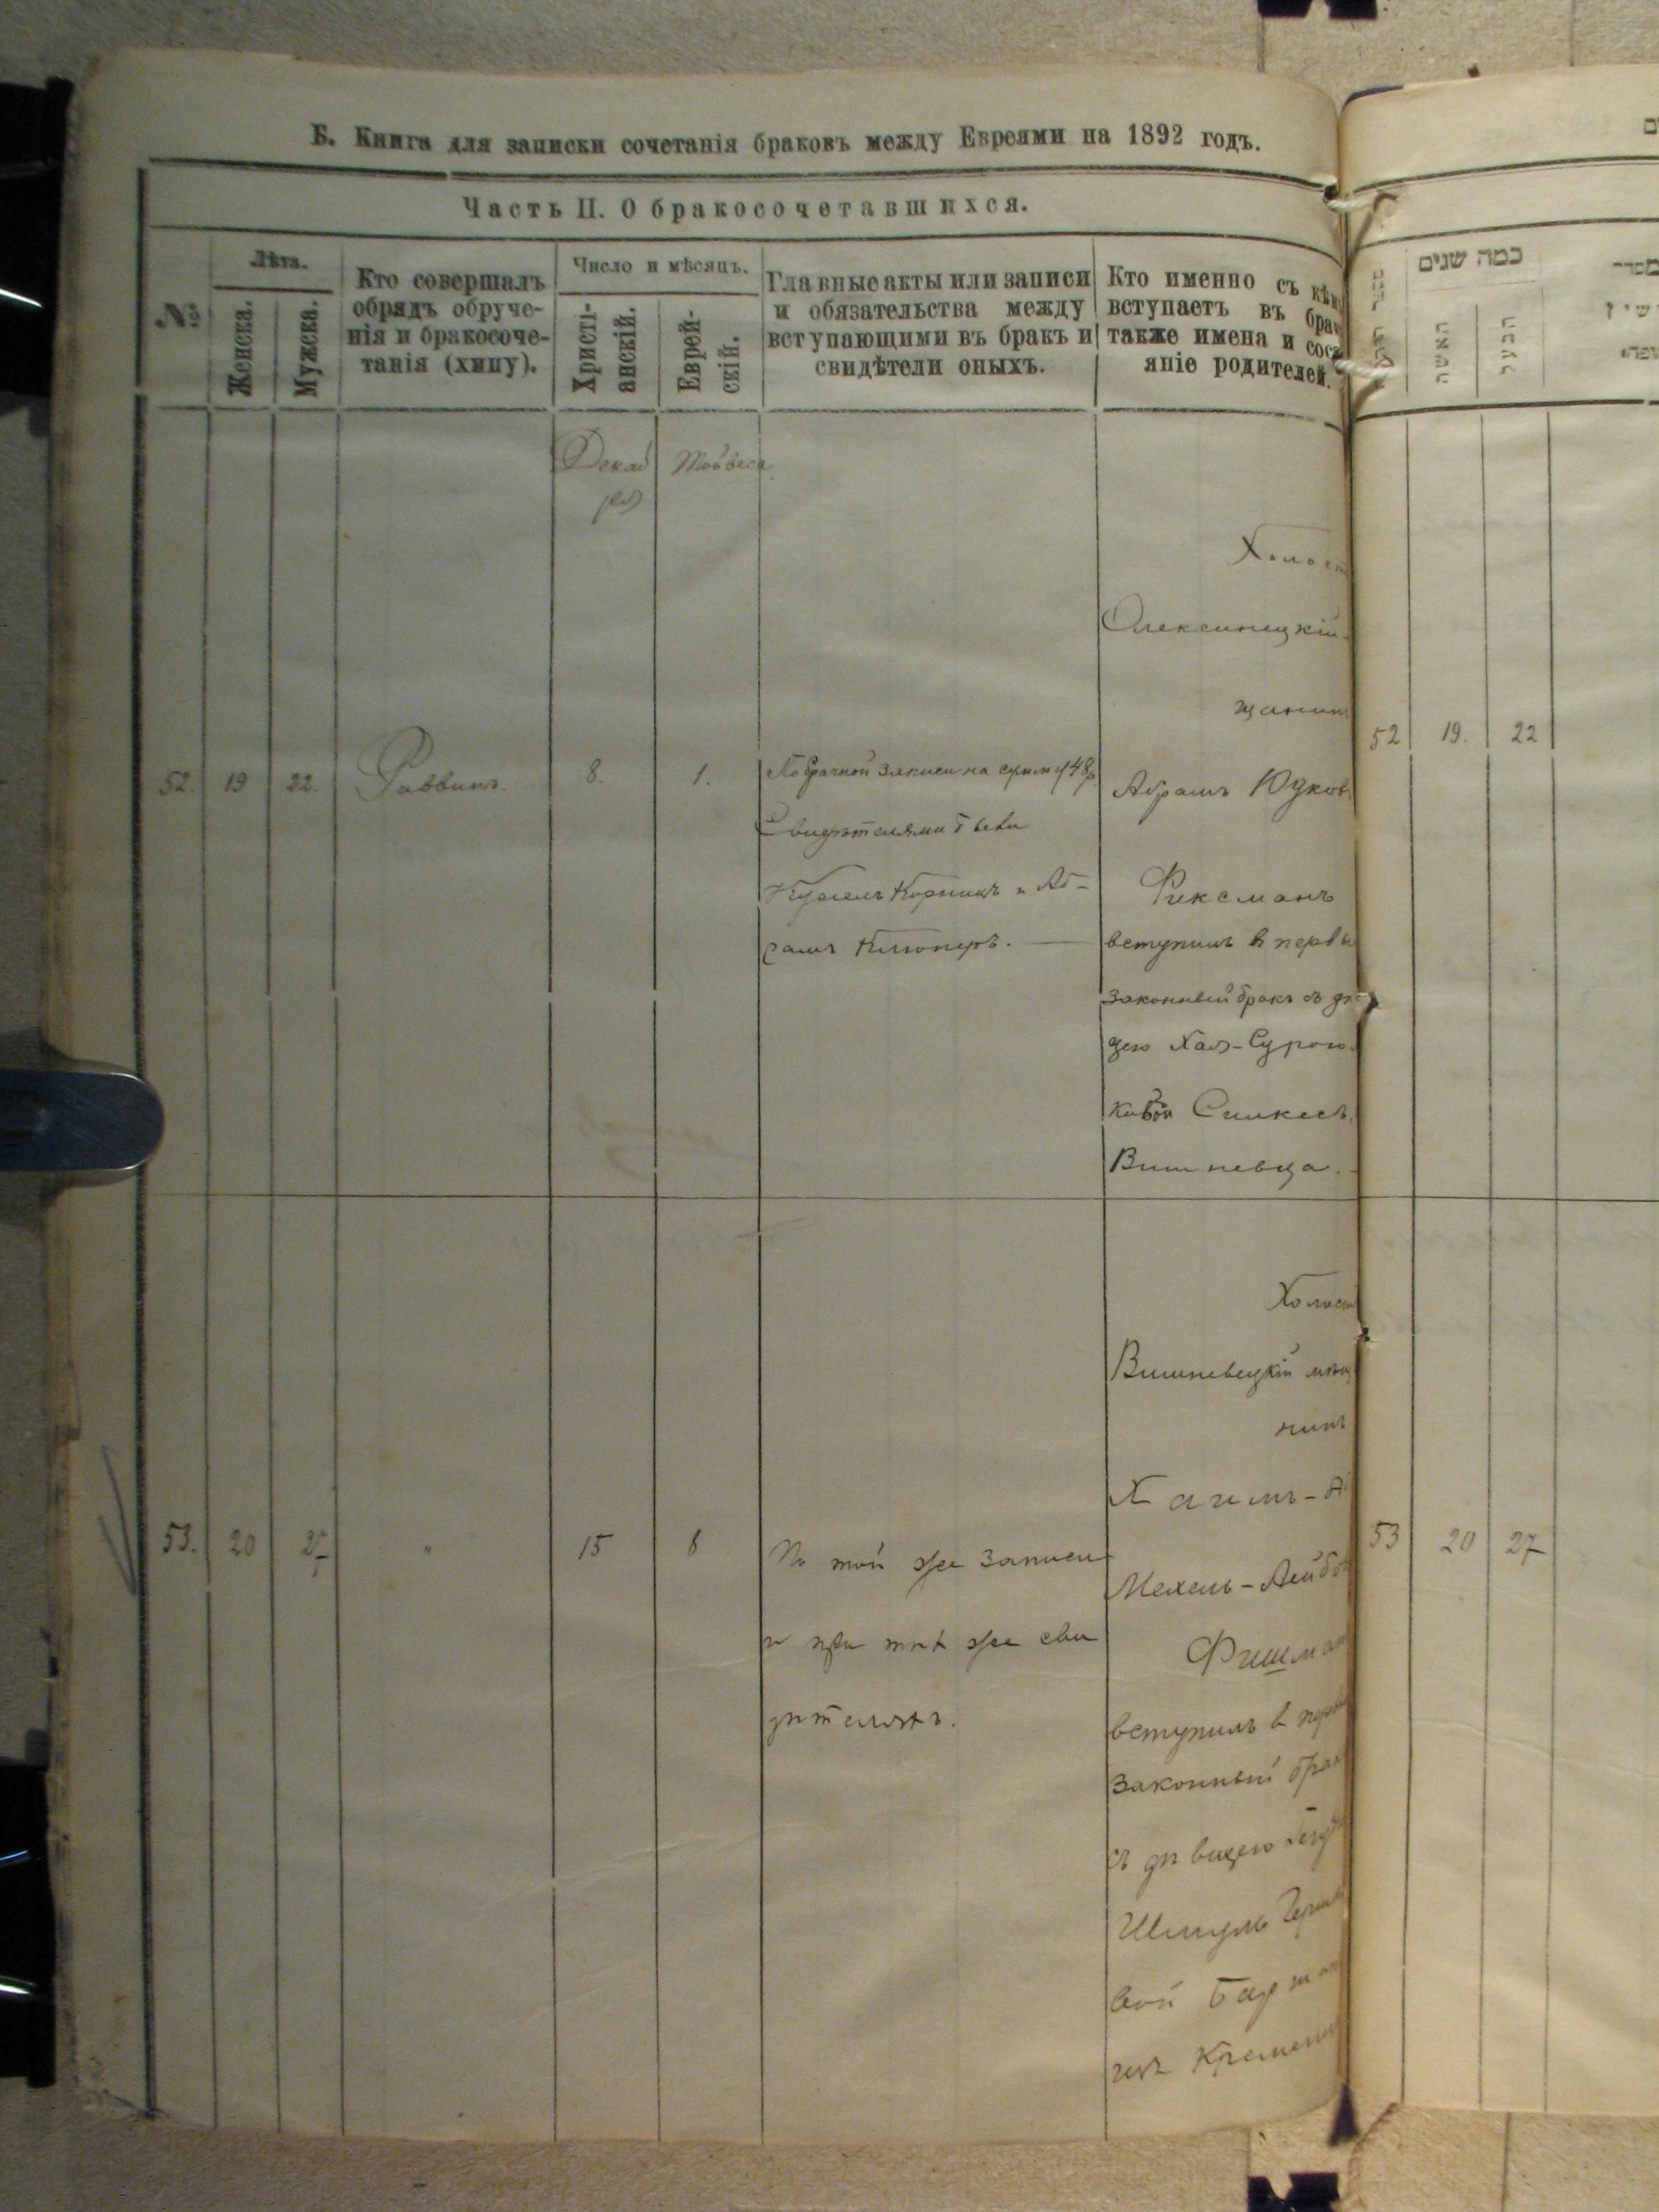 Б. Книга для записки сочетанія браковъ между Евреями на 1892 годъ.
Часть II. О бракосочетавшихся.
№
Лѣта.
Женска.
Мужска.
Кто совершалъ
обрядъ обруче-
нія и бракосоче-
танія (хипу).
Число и мѣсяцъ.
Христі-
анскій.
Еврей-
скій.
Главные акты или записи
и обязательства между
вступающими въ бракъ и
свидѣтели оныхъ.
Кто именно съ кѣм
вступаетъ въ бра
также имена и сос
яніе родителей.
כמה שנים
האשה
הבעל
Декаб
ря
Тойвеса
52.
19
22.
Раввинъ.
8.
1.
По брачной записи на сумму 48 р.
Свидѣтелями были
Корницъ и Аб-
рамъ Клюперъ.
Холост
Олексинецкій
щанинъ
Абрамъ Юдков
Фиксманъ
вступилъ в первы
законный бракъ съ дѣ
цею Хая-Сурою
Вишневца.
52
19.
22
53.
20
27
"
15
8
По той же записи
и при тѣх же сви
дѣтеляхъ.
Холост
Вишневецкій мѣщ
нинъ
Хаимъ-
Мехель-Лейбов
Фишман
вступилъ в первы
законный брак
съ дѣвицею
Шмуль Герш
вой
изъ Кременц
53
20
27